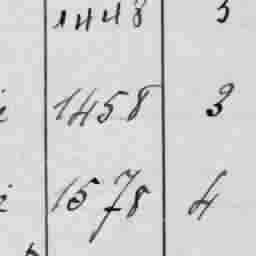 1448
1458 3
1578 4